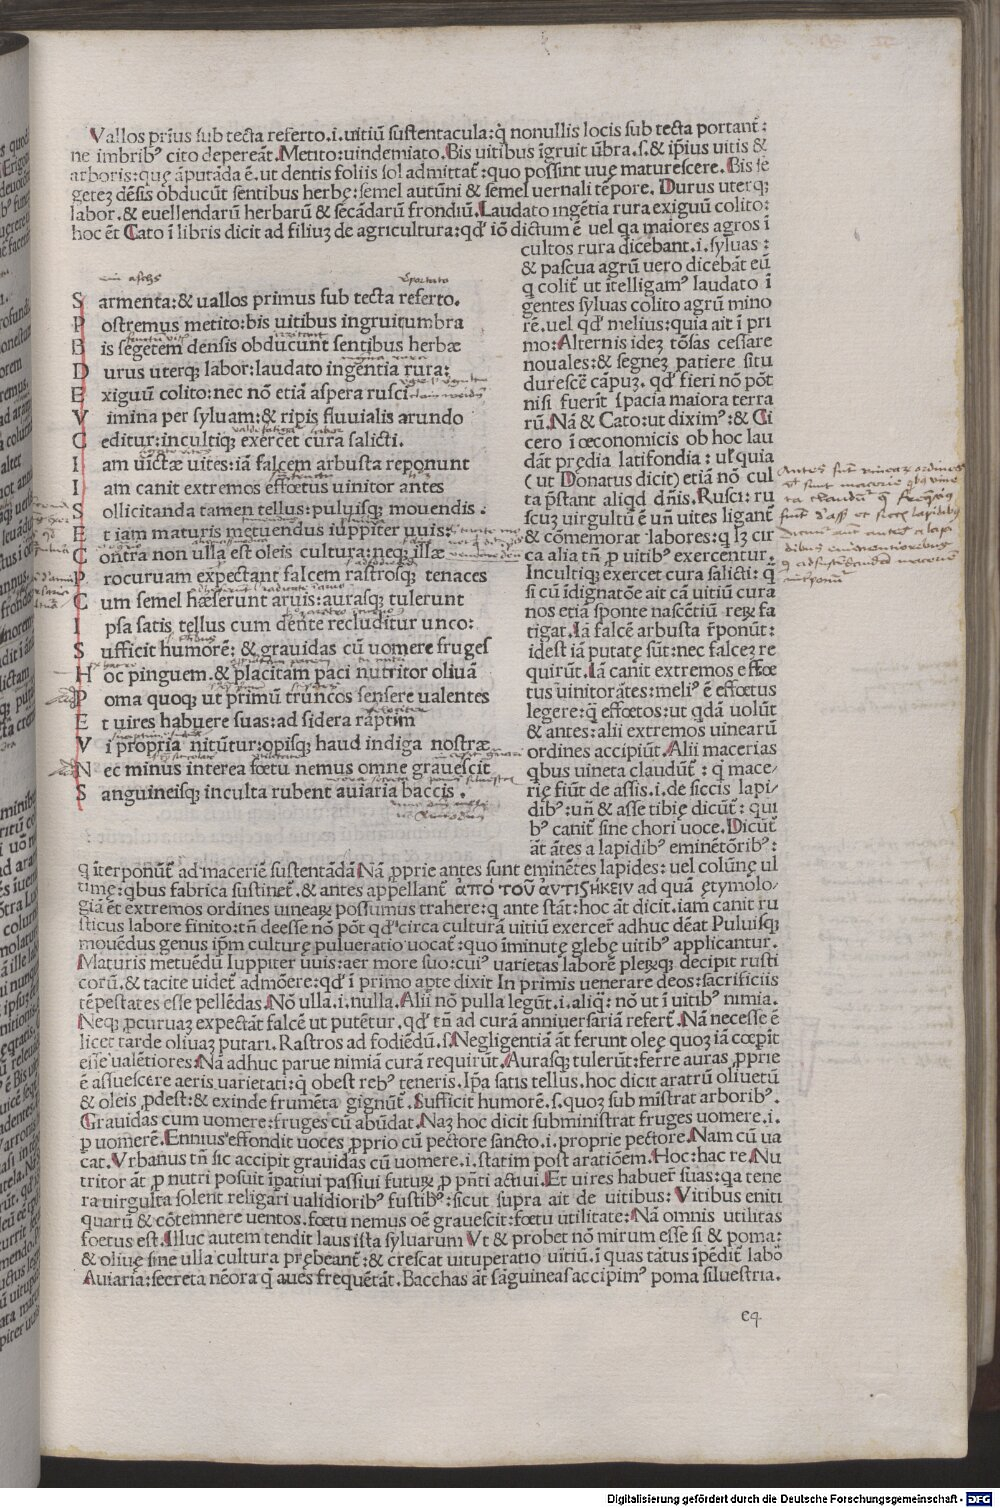 Vallos prīus sub tecta referto.i.uitiū sustentacula:q̄ nonullis locis sub tecta portant̄:
ne imbribꝰ cito depereāt.Metito:uindemiato.Bis uitibus īgruit ūbra.s.& ip̄ius uitis &
arboris:quę āputāda ē.ut dentis foliis sol admittat̄:quo possint uuę maturescere.Bis se
getez dēsis obducūt sentibus herbę:semel autūni & semel uernali tēpore. Durus uterqꝫ
labor.& euellendarū herbarū & secādarū frondiū.Laudato ingētia rura exiguū colito:
hoc ēt Cato ī libris dicit ad filiuꝫ de agricultura:qd' iō dictum ē uel qa maiores agros ī
cultos rura dicebant.i.syluas:
& pascua agrū uero dicebāt eū
q colit̄ ut ītelligamꝰ laudato ī
gentes syluas colito agrū mino
rē.uel qd' melius:quia ait ī pri
mo:Alternis ideꝫ tōsas cessare
nouales:& segneꝫ patiere situ
durescē cāpuꝫ. qd' fieri nō pōt
nisi fuerīt spacia maiora terra
rū.Nā & Cato:ut diximꝰ:& Ci
cero ī œconomicis ob hoc lau
dāt prędia latifondia: ul' quia
(ut Donatus dicit) etiā nō cul
ta p̄stant aliqd dn̄is.Rusci: ru
scuꝫ uirgultū ē un̄ uites ligant̄
& cōmemorat labores:q lꝫ cir
ca alia tn̄ p uitibꝰ exercentur.
Incultiqꝫ exercet cura salicti: q̄
si cū īdignatōe ait cā uitiū cura
nos etiā sponte nascētiū reꝝ fa
tigat.Iā falcē arbusta rp̄onūt:
idest iā putatę sūt:nec falceꝫ re
quirūt.Iā canit extremos effœ
tus uinitor ātes:meliꝰ ē effœtus
legere:q̄ effœtos:ut qdā uolūt
& antes:alii extremos uinearū
ordines accipiūt.Alii macerias
qbus uineta claudūt̄ : q̄ mace/
rię fiūt de assis.i.de siccis lapi/
dibꝰ:un̄ & asse tibię dicūt̄: qui
bꝰ canit̄ sine chori uoce.Dicūt̄
āt ātes a lapidibꝰ eminētōribꝰ:
S armenta:& uallos primus sub tecta referto.
P ostremus metito:bis uitibus ingruit umbra
B is segetem densis obducunt sentibus herbæ
D urus uterqꝫ labor:laudato ingētia rura:
E xiguū colito:nec nō etiā aspera rusci
V imina per syluam:& ripis fluuialis arundo
C editur:incultiqꝫ exercet cura salicti.
I am uīctæ uites:iā falcem arbusta reponunt
I am canit extremos effœtus uinitor antes
S ollicitanda tamen tellus:puluisqꝫ mouendis.
E t iam maturis metuendus iuppiter uuis:
C ontra non ulla est oleis cultura:neqꝫ illæ
P rocuruam expectant falcem rastrosqꝫ tenaces
C um semel hæserunt aruis:aurasqꝫ tulerunt
I psa satis tellus cum dente recluditur unco:
S ufficit humorē: & grauidas cū uomere fruges
H oc pinguem.& placitam paci nutritor oliuā
P oma quoqꝫ ut primū truncos sensere ualentes
E t uires habuere suas:ad sidera rāptim
V i propria nitūtur:opisqꝫ haud indiga nostræ
N ec minus interea fœtu nemus omne grauescit
S anguineisqꝫ inculta rubent auiaria baccis.
q īterponūt̄ ad maceriē sustentādā Nā pprie antes sunt eminētes lapides: uel colūnę ul
timę:qbus fabrica sustinet̄.& antes appellant̄ ἀπό τοῦ ἀντιςήκειν ad quā ętymolo-
giā ēt extremos ordines uineaꝝ possumus trahere:q ante stāt:hoc āt dicit.iam canit ru
sticus labore finito:tn̄ deesse nō pōt qd' circa culturā uitiū exercet̄ adhuc dēat Puluisqꝫ
mouēdus genus ip̄m culturę pulueratio uocat̄:quo īminutę glebę uitibꝰ applicantur.
Maturis metuēdū Iuppiter uuis:aer more suo:cuiꝰ uarietas laborē pleꝝqꝫ decipit rusti
corū.& tacite uidet̄ admōere:qd' ī primo apte dixit In primis uenerare deos:sacrificiis
tēpestates esse pellēdas.Nō ulla.i.nulla.Alii nō pulla legūt.i.aliq̄: nō ut ī uitibꝰ nimia.
Neqꝫ pcuruaꝫ expectāt falcē ut putētur.qd' tn̄ ad curā anniuersariā refert̄.Nā necesse ē
licet tarde oliuaꝫ putari.Rastros ad fodiēdū.s.Negligentiā āt ferunt oleę quoꝫ iā cœpīt
esse ualētiores.Nā adhuc parue nimiā curā requirūt.Aurasqꝫ tulerūt:ferre auras pprie
ē assuescere aeris uarietati:q obest rebꝰ teneris.Ip̄a satis tellus.hoc dicit aratrū oliuetū
& oleis pdest:& exinde frumēta gignūt̄.Sufficit humorē.s.quoꝫ sub mistrat arboribꝰ.
Grauidas cum uomere:fruges cū abūdat.Naꝫ hoc dicit subministrat fruges uomere.i.
p uomerē.Ennius effondit uoces pprio cū pectore sancto.i.proprie pectore.Nam cū ua
cat.Vrbanus tn̄ sic accipit grauidas cū uomere.i.statim post aratiōem.Hoc:hac re.Nu
tritor āt p nutri posuit īpatiui passiui futuꝝ p pn̄ti actiui.Et uires habuer̄ suas:qa tene
ra uirgulta solent religari ualidioribꝰ fustibꝰ:sicut supra ait de uitibus: Vitibus eniti
quarū & cōtemnere uentos.fœtu nemus oē grauescit:fœtu utilitate:Nā omnis utilitas
foetus est.Illuc autem tendit laus ista syluarum Vt & probet nō mirum esse si & poma:
& oliuę sine ulla cultura prębeant̄:& crescat uituperatio uitiū.ī quas tātus īpēdit̄ labō
Auiaria:secreta nēora q̄ aues frequētāt.Bacchas āt sāguineas accipimꝰ poma siluestria.
eq
Digitalisierung gefördert durch die Deutsche Forschungsgemeinschaft - DFG